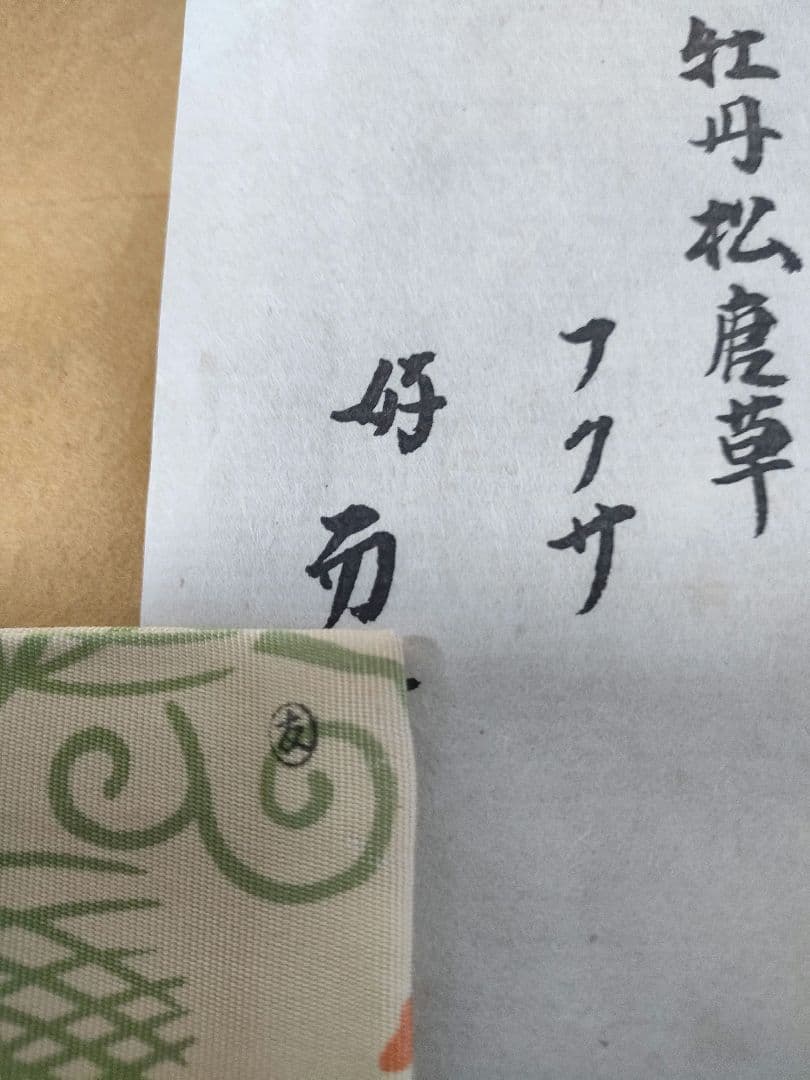 牡丹松唐草
フクサ
好
友